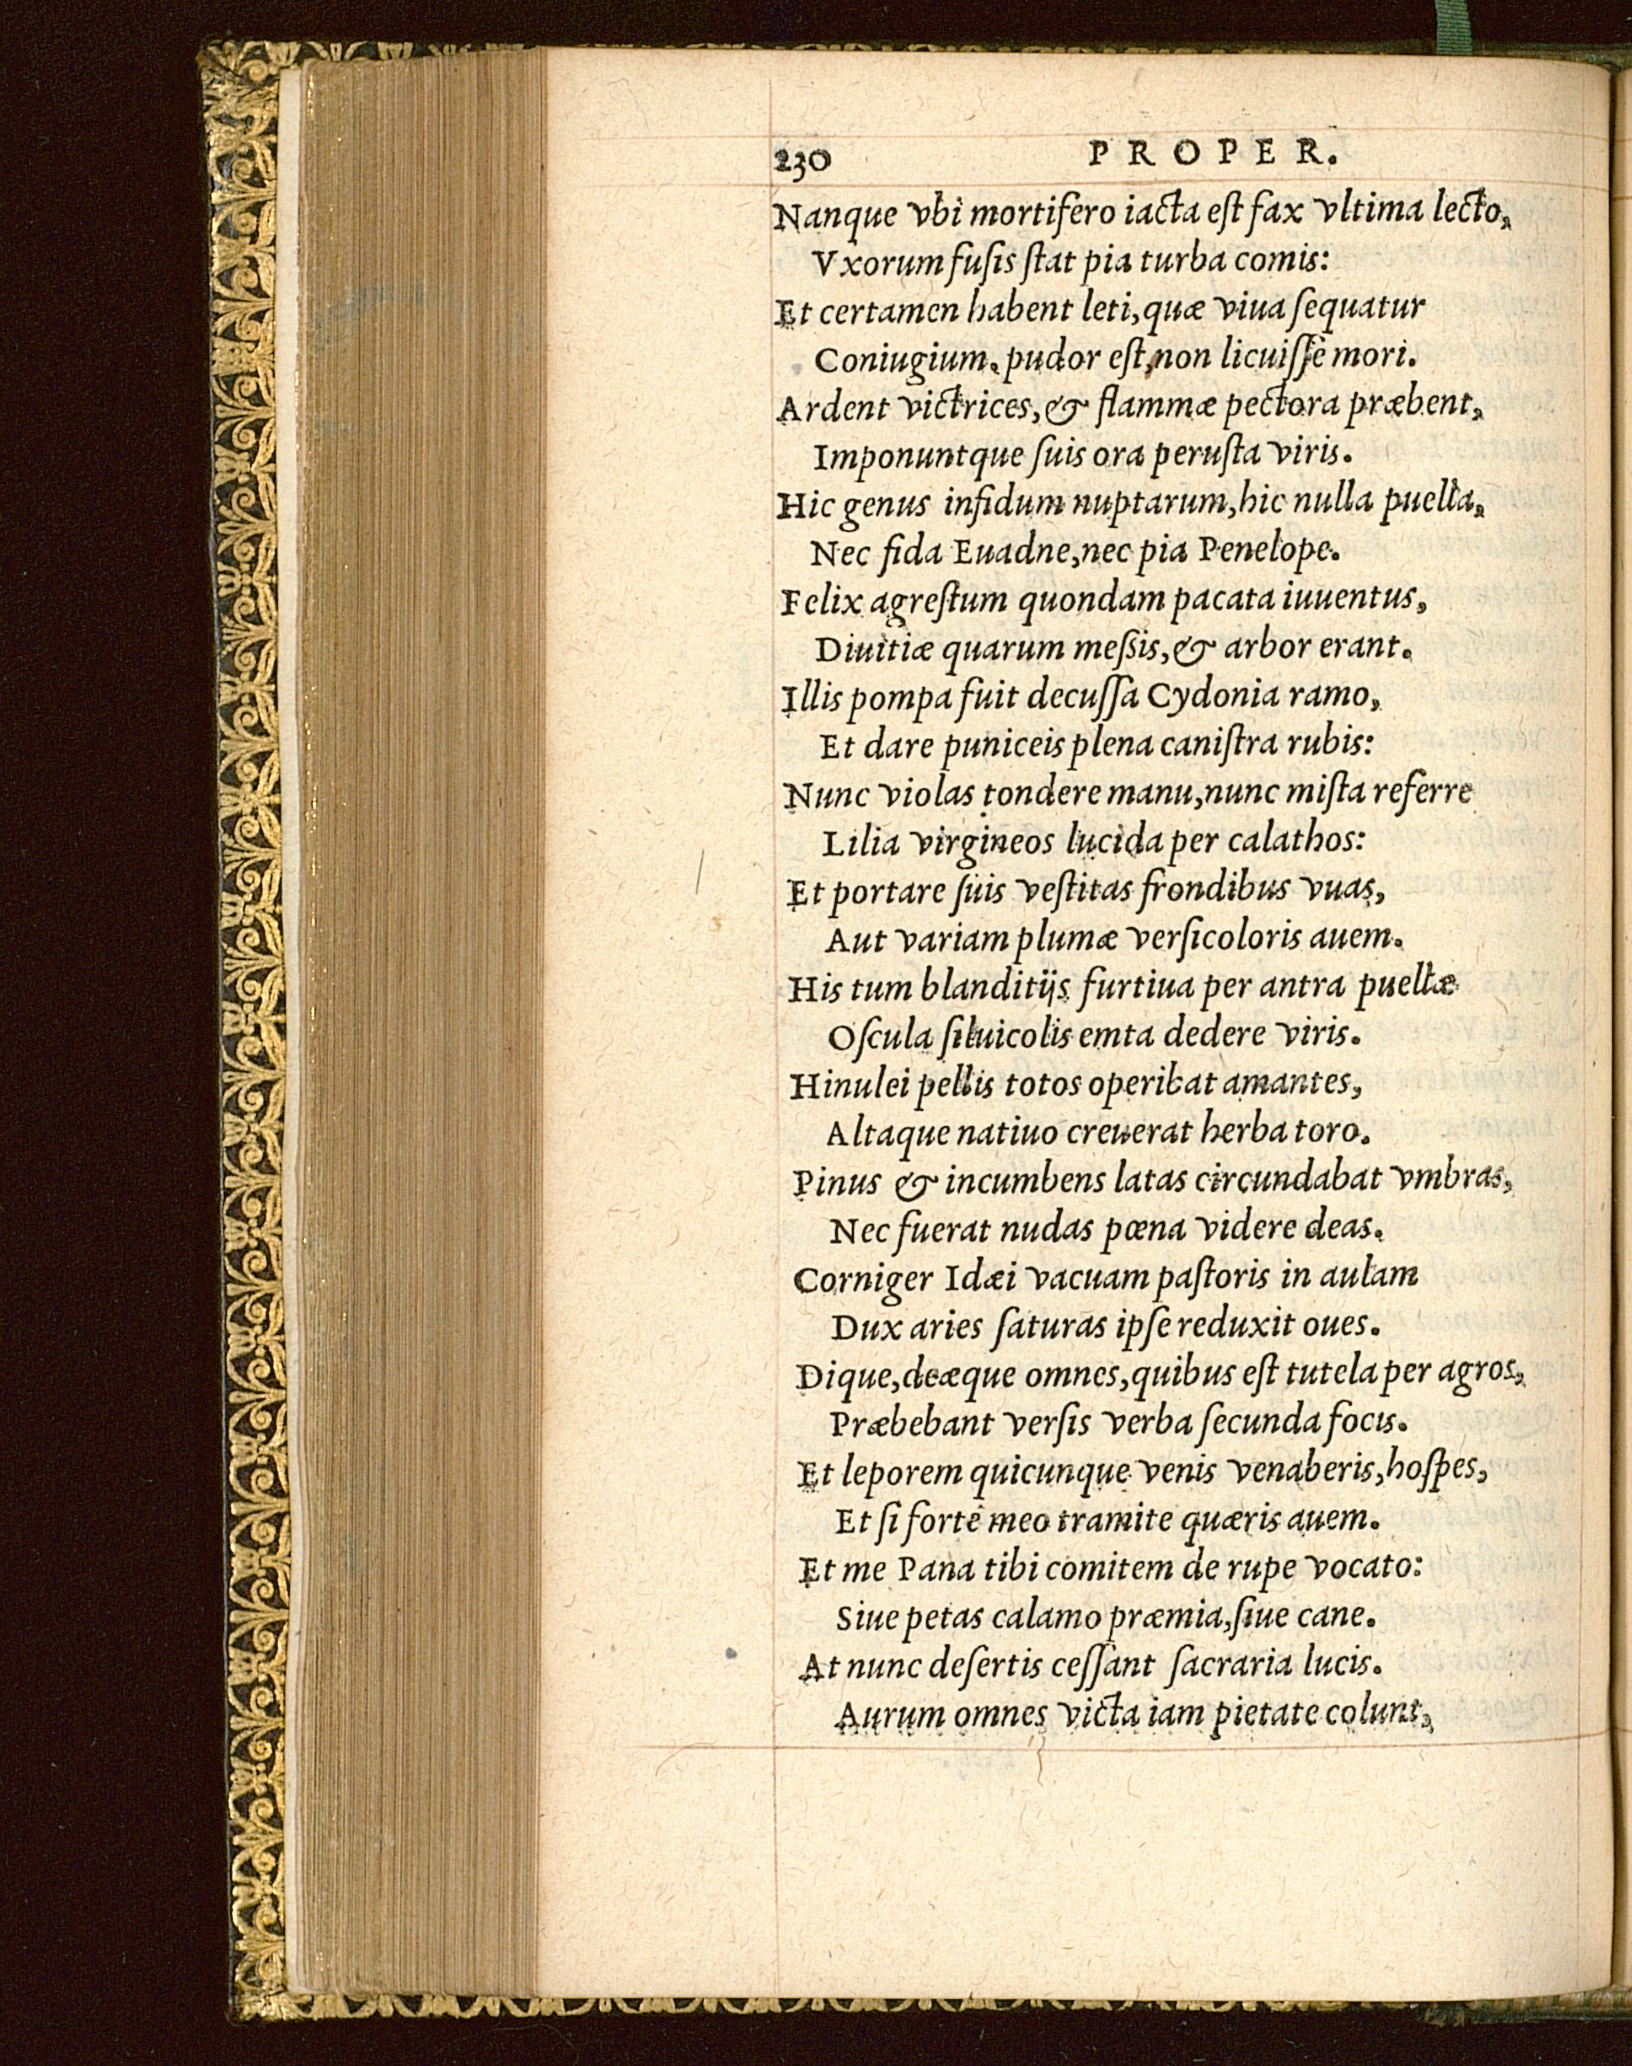 230 PROPER.
Nanque vbi mortifero iacta eſt fax vltima lecto,
Vxorum fuſis ſtat pia turba comis:
Et certamen habent leti, quæ viua ſequatur
Coniugium. pudor eſt, non licuiſſe mori.
Ardent victrices, & flammæ pectora præbent,
Imponuntque ſuis ora peruſta viris.
Hic genus infidum nuptarum, hic nulla puella,
Nec fida Euadne, nec pia Penelope.
Felix agreſtum quondam pacata iuuentus,
Diuitiæ quarum meſsis, & arbor erant.
Illis pompa fuit decuſſa Cydonia ramo,
Et dare puniceis plena caniſtra rubis:
Nunc violas tondere manu, nunc miſta referre
Lilia virgineos lucida per calathos:
Et portare ſuis veſtitas frondibus vuas,
Aut variam plumæ verſicoloris auem.
His tum blanditijs furtiua per antra puellæ
Oſcula ſiluicolis emta dedere viris.
Hinulei pellis totos operibat amantes,
Altaque natiuo creuerat herba toro.
Pinus & incumbens latas circundabat vmbras,
Nec fuerat nudas pœna videre deas.
Corniger Idæi vacuam paſtoris in aulam
Dux aries ſaturas ipſe reduxit oues.
Dique, deæque omnes, quibus eſt tutela per agros,
Præbebant verſis verba ſecunda focis.
Et leporem quicunque venis venaberis, hoſpes,
Et ſi fortè meo tramite quæris auem.
Et me Pana tibi comitem de rupe vocato:
Siue petas calamo præmia, ſiue cane.
At nunc deſertis ceſſant ſacraria lucis.
Aurum omnes victa iam pietate colunt,